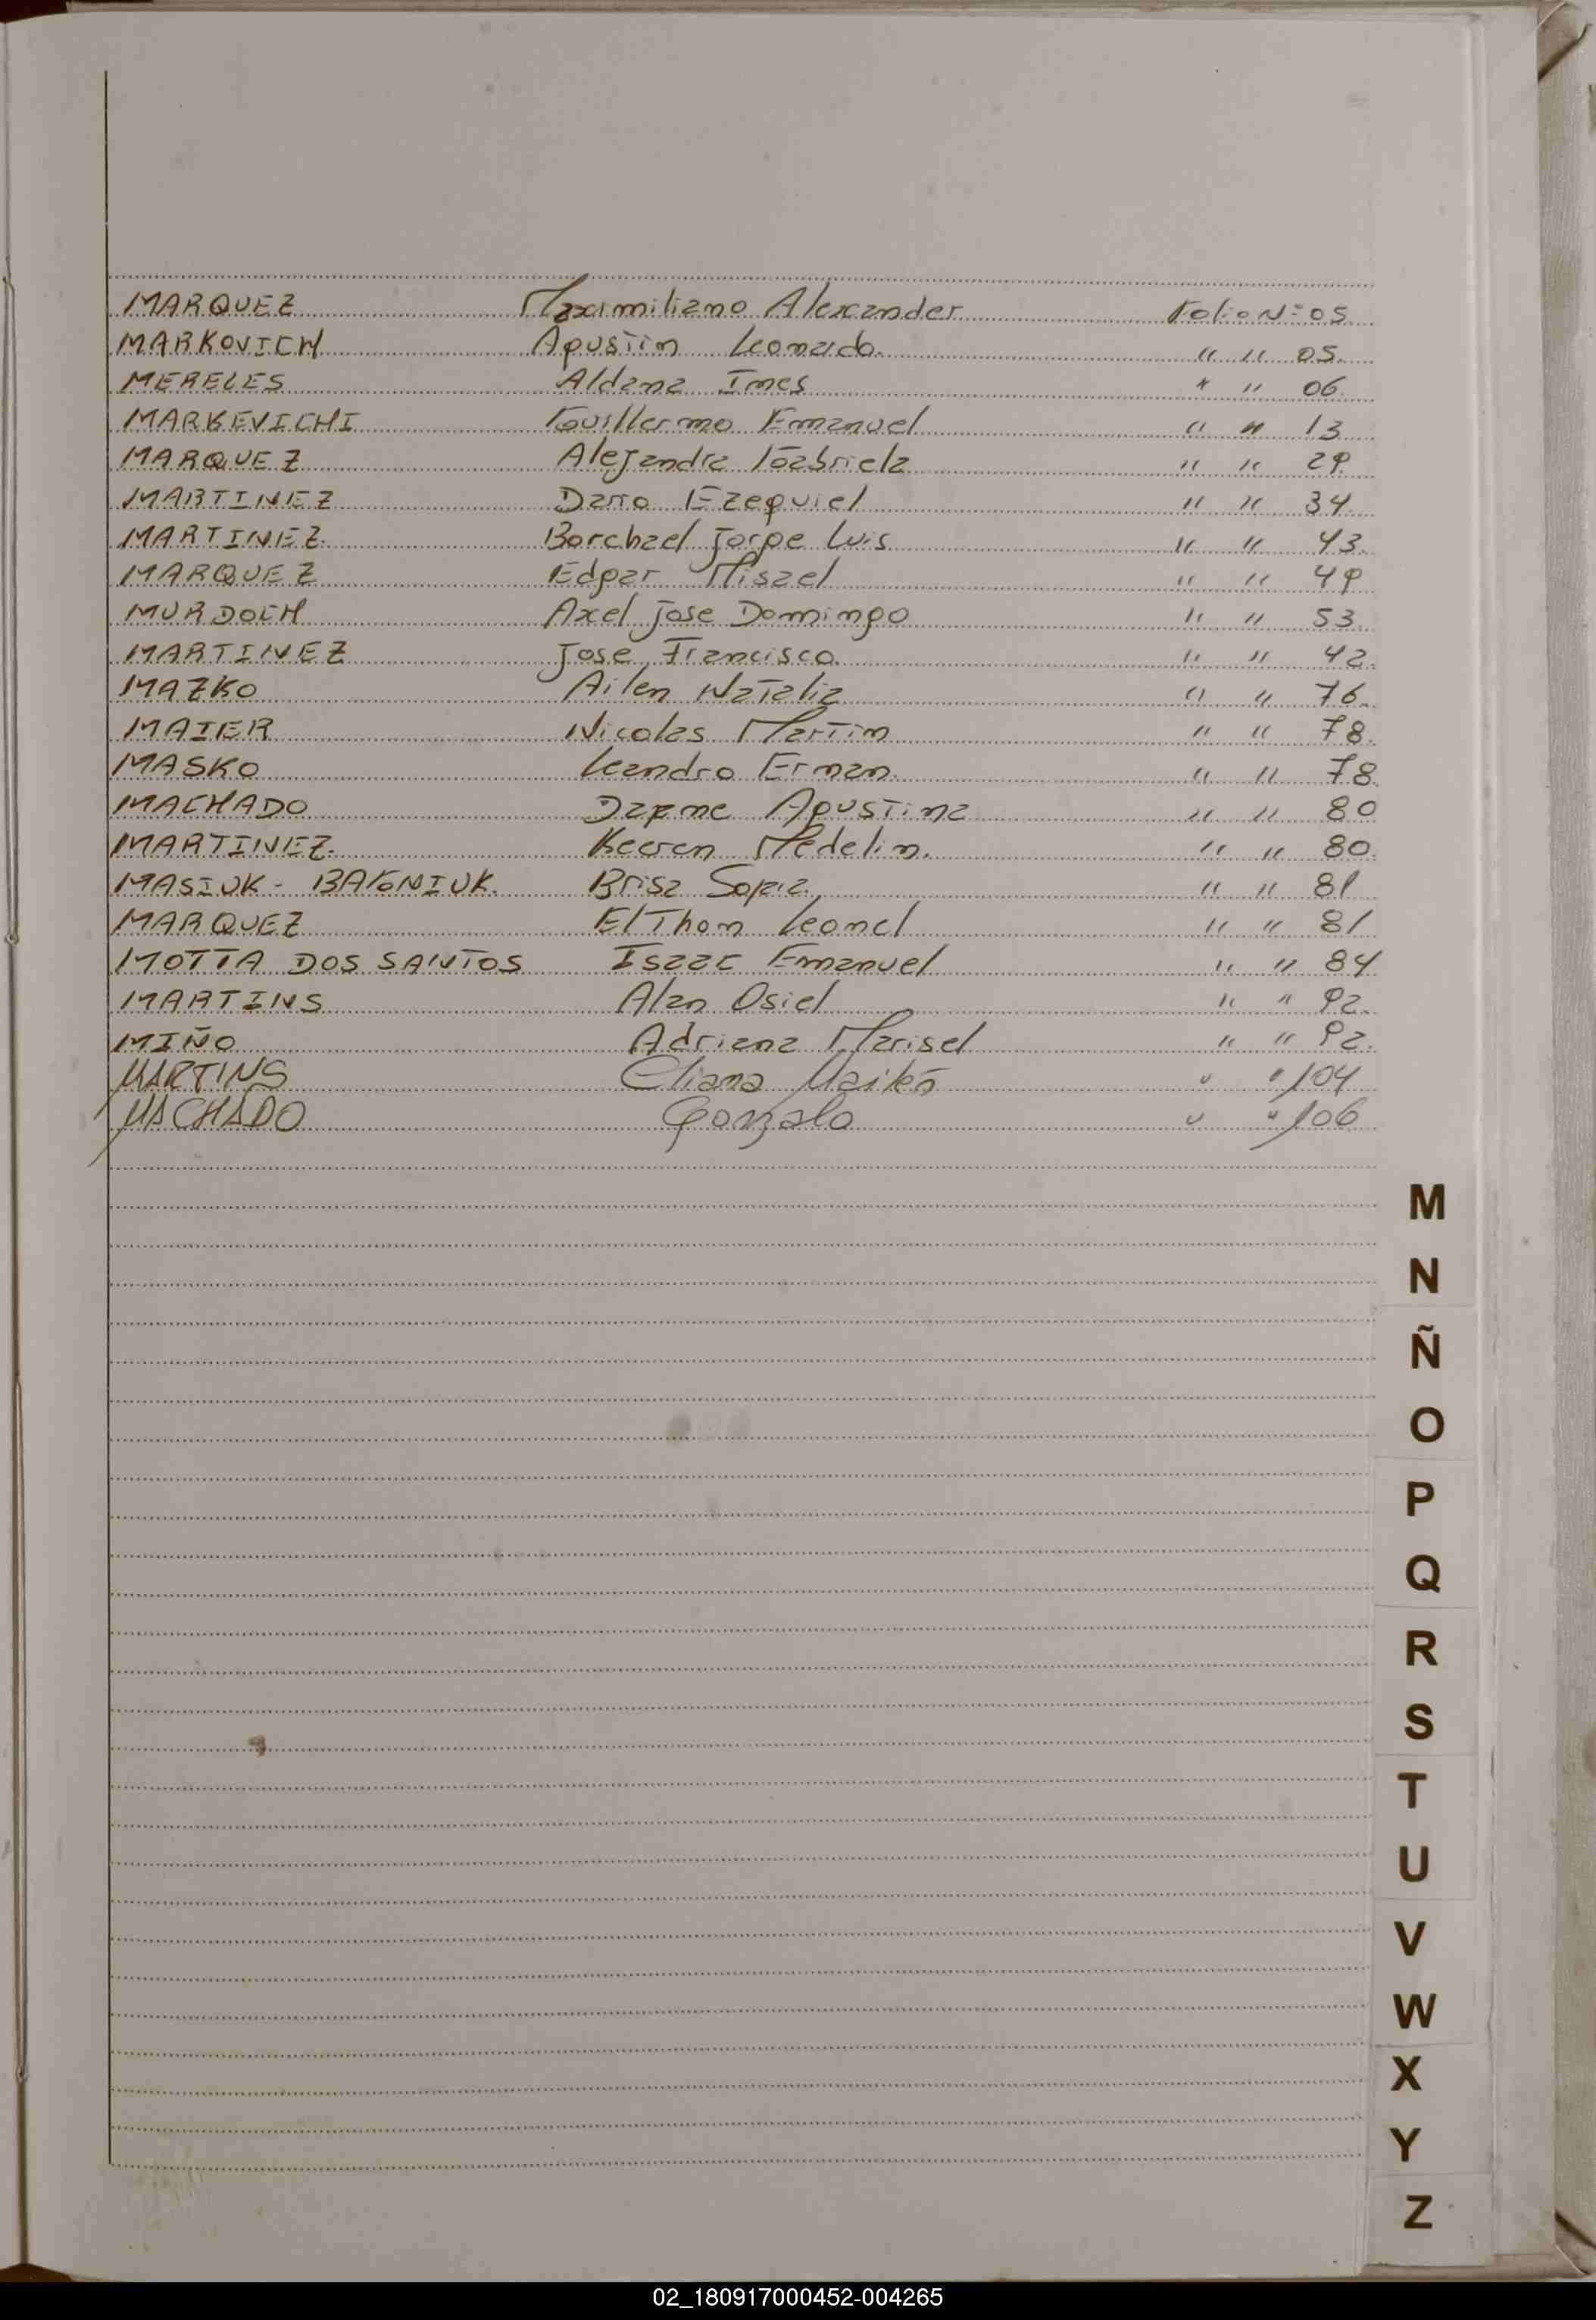 MARQUEZ Maximiliano Alexander Folio Nº 05
MARKOVICH Agustiin Leonardo. " " 05.
MERELES Aldana Ines " " 06
MARKEVICHI Guillermo Emanuel " " 13
MARQUEZ Alejandra Gabriela " " 29
MARTINEZ Dario Ezequiel " " 34
MARTINEZ. Jorge Luis " " 43.
MARQUEZ Edgar Misael " " 49
MURDOCH Axel Jose Domingo " " 53.
MARTINEZ Jose Francisco. " " 42.
MAZKO Ailen Natalia " " 76.
MAIER Nicolas Martin " " 78.
MASKO Leandro Ernan. " " 78
MACHADO Dafne Agustina " " 80
MARTINEZ. Keeren Medelin. " " 80.
MASIUK - BAGNIUK. Brisa Sofia. " " 81
MARQUEZ ElThon Leonel " " 81
MOTTA DOS SANTOS Isaac Emanuel " " 84
MARTINS Alan Osiel " " 92.
MIÑO Adriana Marisel " " 92.
MARTINS Eliana " " 104
MACHADO Gonzalo " " 106
M
N
Ñ
O
P
Q
R
S
T
U
V
W
X
Y
Z
02_180917000452-004265